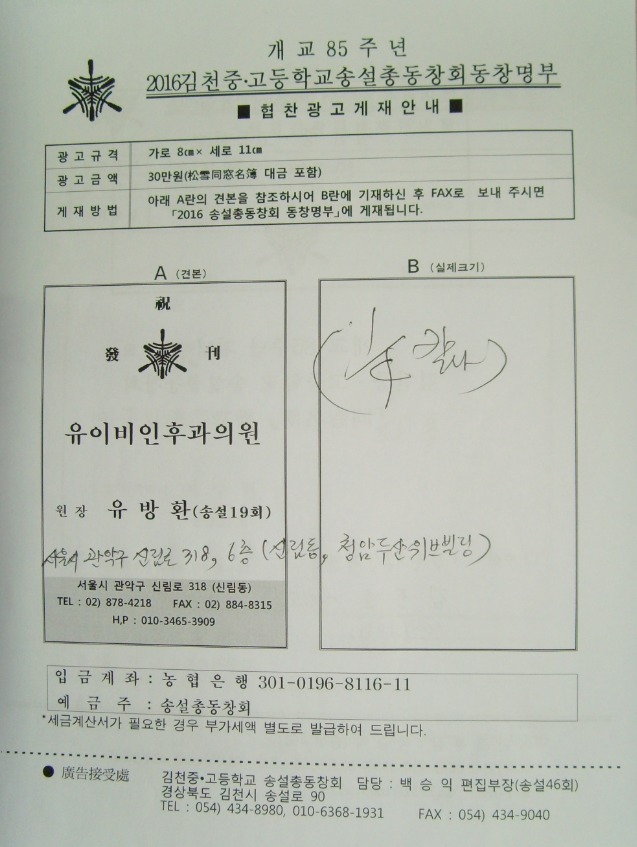 개 교 85 주 년
2016김천중·고등학교송설총동창회동창명부
■ 협 찬 광 고 게 재 안 내 ■
광 고 규 격 가로 8㎝× 세로 11㎝
광 고 금 액 30만원(松雪同窓名簿 대금 포함)
게 재 방 법 아래 A란의 견본을 참조하시어 B란에 기재하신 후 FAX로 보내 주시면
「2016 송설총동창회 동창명부」에 게재됩니다.
A (견본)
B (실제크기)
祝
發 刊
유이비인후과의원
원 장 유 방 환(송설19회)
서울시 관악구 신림로 318, 6층 (신림동, 청암두산위브빌딩)
서울시 관악구 신림로 318 (신림동)
TEL : 02) 878-4218 FAX : 02) 884-8315
H,P : 010-3465-3909
입 금 계 좌 : 농 협 은 행 301-0196-8116-11
예 금 주 : 송설총동창회
*세금계산서가 필요한 경우 부가세액 별도로 발급하여 드립니다.
● 廣告接受處 김천중·고등학교 송설총동창회 담당 : 백 승 익 편집부장(송설46회)
경상북도 김천시 송설로 90
TEL : 054) 434-8980, 010-6368-1931 FAX : 054) 434-9040